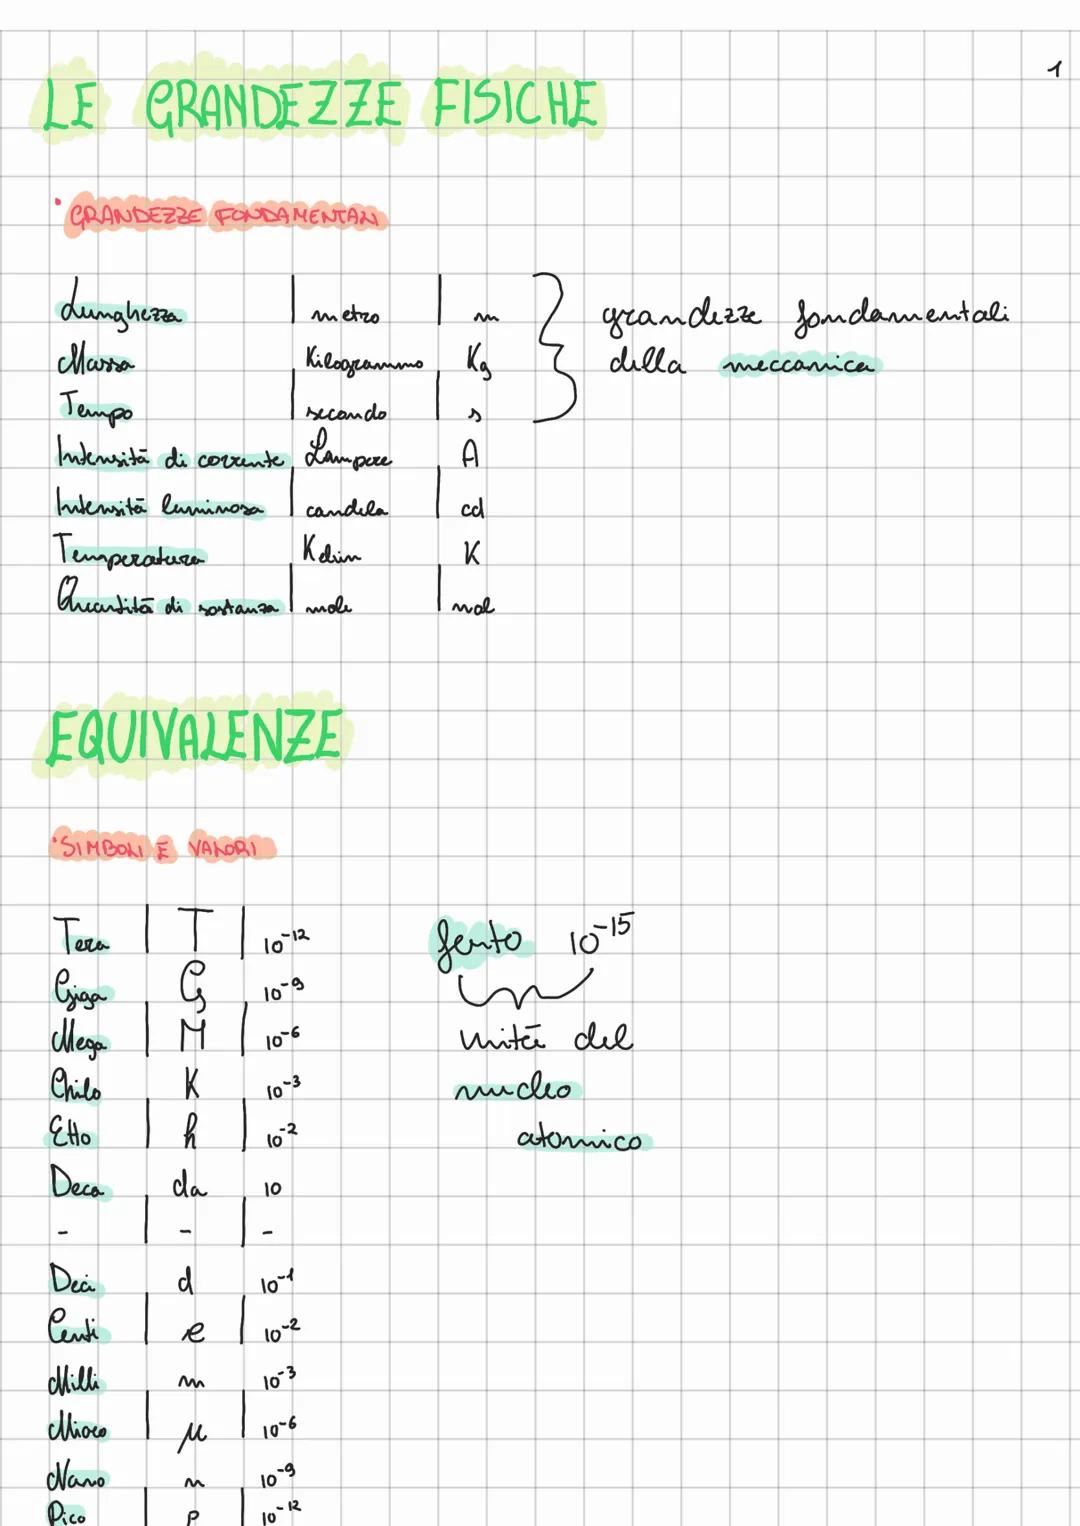 1
LE GRANDEZZE FISICHE
• GRANDEZZE FONDAMENTALI
Lunghezza | metro | m
grandezze fondamentali
Massa Kilogrammo Kg
della meccanica
Tempo | secondo | s
Intensità di corrente L'ampere A
Intensità luminosa | candela | cd
Temperatura Kelvin K
Quantità di sostanza | mole | mol
EQUIVALENZE
• SIMBOLI E VALORI
Tera | T | 10⁻¹²
femto 10⁻¹⁵
Giga G 10⁻⁹
Mega | M | 10⁻⁶
unità del
Chilo K 10⁻³
nucleo
Etto | h | 10⁻²
atomico
Deca da 10
- | - | -
Deci d 10⁻¹
Centi | c | 10⁻²
Milli m 10⁻³
Micro | μ | 10⁻⁶
Nano n 10⁻⁹
Pico | p | 10⁻¹²